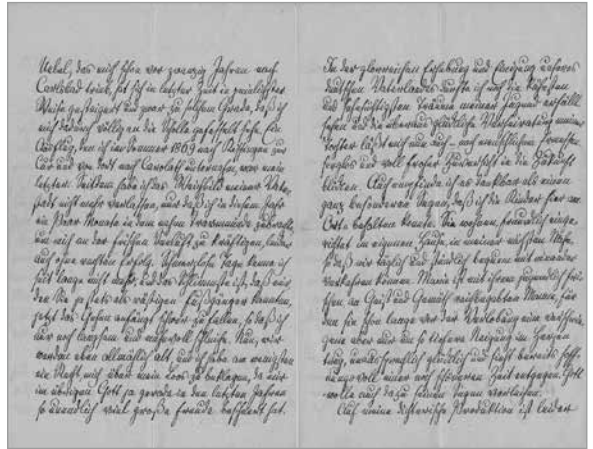 Uebel, das mich schon vor zwanzig Jahren nach
Carlsbad trieb, hat sich in letzter Zeit in peinlichster
Weise gesteigert und zwar zu solchem Grade, daß ich
mich dadurch völlig an die Scholle gefesselt sehe. Ein
Ausflug, den ich im Sommer 1869 nach Kissingen zur
Cur und von dort nach Carolath unternahm, war mein
letzter. Seitdem habe ich das Weichbild meiner Vater-
stadt nicht mehr verlassen, nur daß ich in diesem Jahr
ein Paar Monate in dem nahen Travemünde zubrachte,
um mich an der frischen Seeluft zu kräftigen, leider
auch ohne rechten Erfolg. Schmerzlose Tage kenne ich
seit lange nicht mehr, und das Schlimmste ist, daß mir,
den Sie ja stets als rüstigen Fußgänger kannten,
jetzt das Gehen anfängt schwer zu fallen, so daß ich
nur noch langsam und mühevoll schleiche. Nun, wir
werden eben allmälich alt, und ich habe am wenigsten
ein Recht, mich über mein Loos zu beklagen, da mir
im übrigen Gott ja gerade in den letzten Jahren
so unendlich viel große Freude bescheert hat.
In der glorreichen Erhebung und Einigung unseres
deutschen Vaterlandes durfte ich noch die kühnsten
und sehnsüchtigsten Träume meiner Jugend erfüllt
sehen und die überaus glückliche Verheirathung meiner
Tochter läßt mich nun auch – nach menschlichem Ermessen –
sorglos und voll froher Zuversicht in die Zukunft
blicken. Auch empfinde ich es dankbar als einen
ganz besonderen Segen, daß ich die Kinder hier am
Orte behalten konnte. Sie wohnen, freundlich einge-
richtet im eigenen Hause, in meiner nächsten Nähe,
so daß wir täglich und stündlich bequem mit einander
verkehren können. Marie ist mit ihrem jugendlich fri-
schen, an Geist und Gemüth reichbegabten Manne, für
den sie schon lange vor der Verlobung eine verschwie-
gene aber nur um so tiefere Neigung im Herzen
trug, unaussprechlich glücklich und sieht bereits hoff-
nungsvoll einer noch schöneren Zeit entgegen. Gott
wolle auch dazu seinen Segen verleihen.
Auf meine dichterische Produktion ist leider